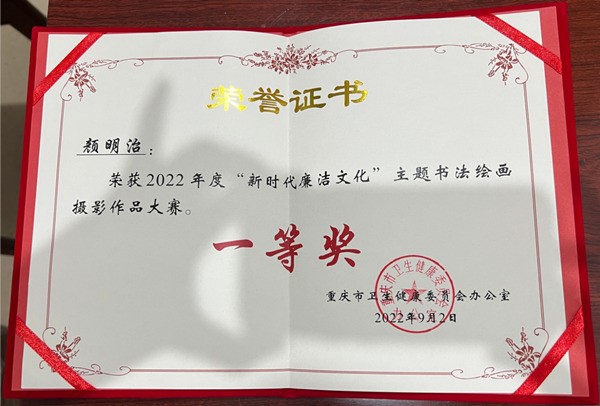 荣誉证书
颜明治：
荣获2022年度“新时代廉洁文化”主题书法绘画
摄影作品大赛。
一等奖
重庆市卫生健康委员会办公室
2022年9月2日
重庆市卫生健康委员会
办公室